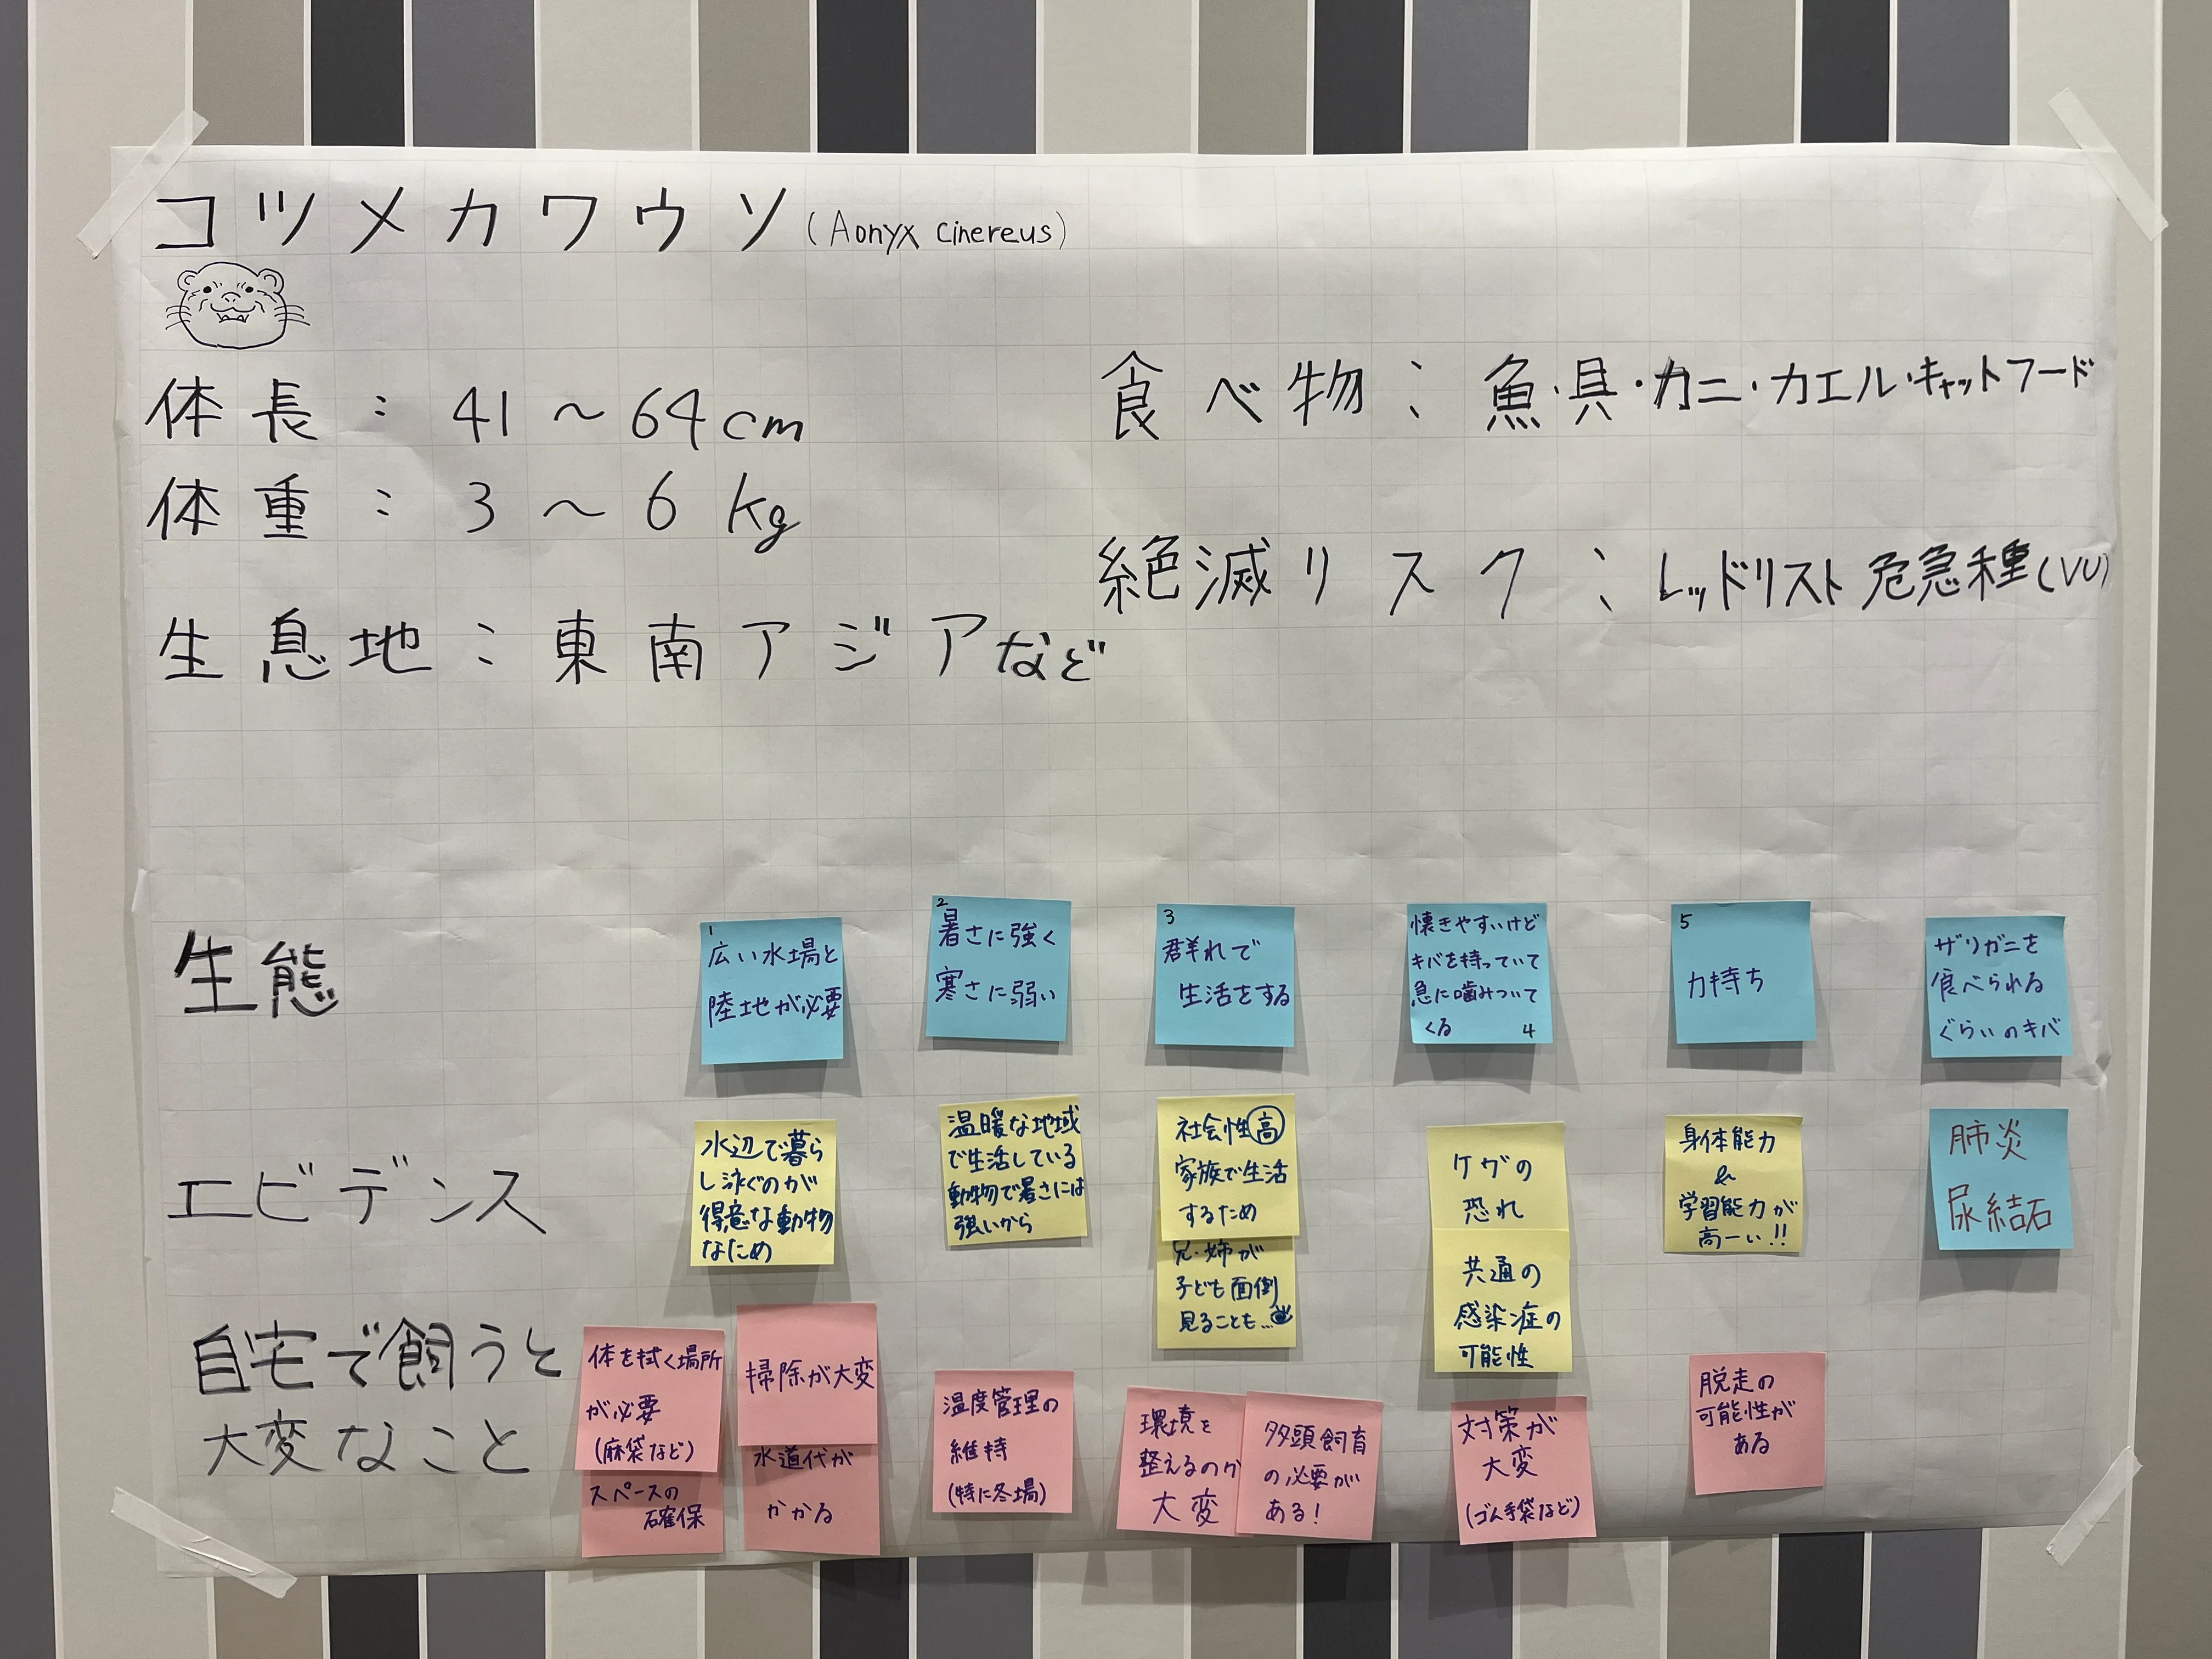 コツメカワウソ(Aonyx cinereus)
体長：41～64cm
体重：3～6kg
生息地：東南アジアなど
食べ物：魚・貝・カニ・カエル・キャットフード
絶滅リスク：レッドリスト 危急種(VU)
生態
1
広い水場と
陸地が必要
2
暑さに強く
寒さに弱い
3
群れで
生活をする
懐きやすいけど
キバを持っていて
急に噛みついて
くる 4
5
力持ち
ザリガニを
食べられる
ぐらいのキバ
エビデンス
水辺で暮ら
し泳ぐのが
得意な動物
なため
温暖な地域
で生活している
動物で暑さには
強いから
社会性高
家族で生活
するため
兄・姉が
子ども面倒
見ることも…
ケガの
恐れ
共通の
感染症の
可能性
身体能力
&
学習能力が
高ーい!!
肺炎
尿結石
自宅で飼うと
大変なこと
体を拭く場所
が必要
(麻袋など)
スペースの
確保
掃除が大変
水道代が
かかる
温度管理の
維持
(特に冬場)
環境を
整えるのが
大変
多頭飼育
の必要が
ある!
対策が
大変
(ゴム手袋など)
脱走の
可能性が
ある